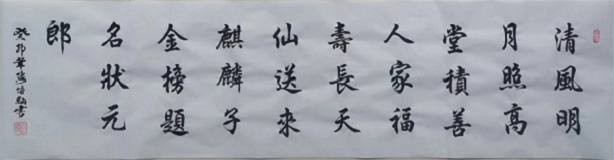 清風明
月照高
堂積善
人家福
壽長天
仙送來
麒麟子
金榜題
名狀元
郎
癸卯年